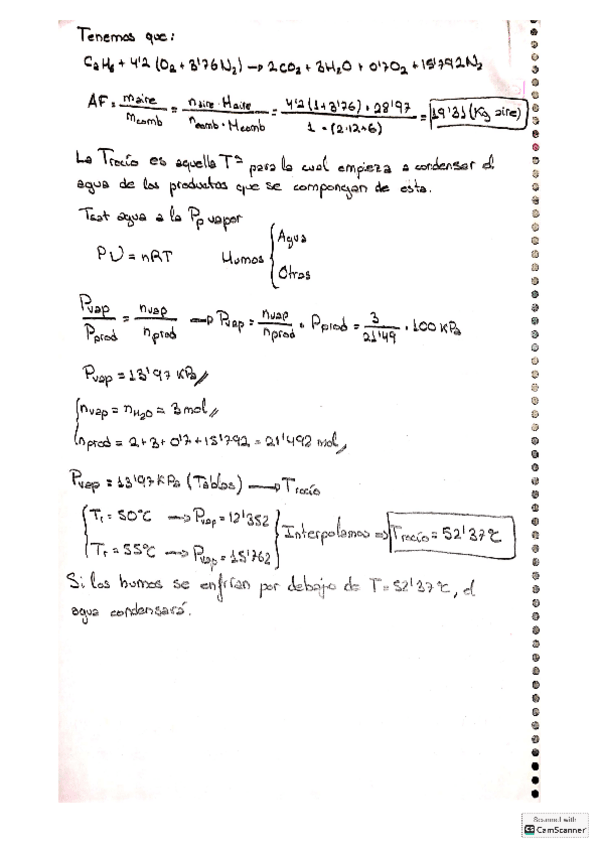 Tenemos que:
C2H6 + 4'2 (O2 + 3'76 N2) → 2CO2 + 3H2O + 0'7O2 + 15'792N2
AF = maire / mcomb = naire · Maire / ncomb · Mcomb = 4'2 (1+3'76) · 28'97 / 1 · (2·12+6) = 19'31 (Kg aire)
La Trocío es aquella Tª para la cual empieza a condensar el
agua de los productos que se compongan de esta.
Tsat agua a la Pp vapor
PV = nRT Humos { Agua
Otros
Pvap / Pprod = nvap / nprod → Pvap = nvap / nprod · Pprod = 3 / 21'49 · 100 KPa
Pvap = 13'97 KPa //
{ nvap = nH2O = 3 mol //
nprod = 2 + 3 + 0'7 + 15'792 = 21'492 mol //
Pvap = 13'97 KPa (Tablas) → Trocío
{ Tr = 50°C → Pvap = 12'352 } Interpolamos ⇒ Trocío = 52'37°C
Tr = 55°C → Pvap = 15'762
Si los humos se enfrían por debajo de T = 52'37°C, el
agua condensará.
Scanned with
CS CamScanner